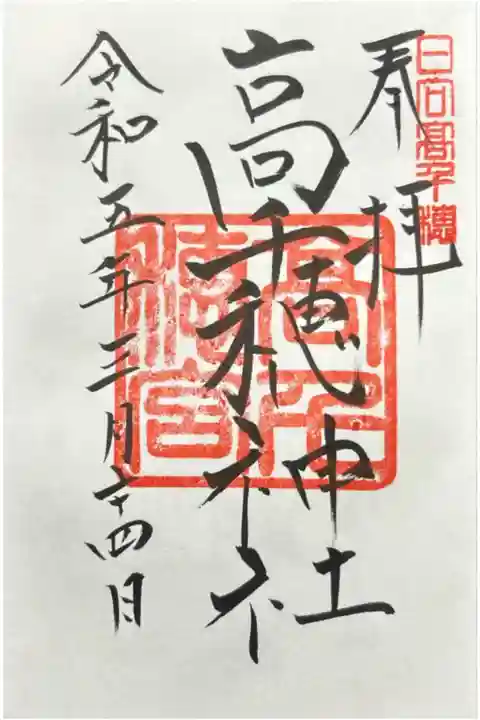 日向高千穂
奉拝
高千穂神社
高千
穂宮
令和五年三月二十四日